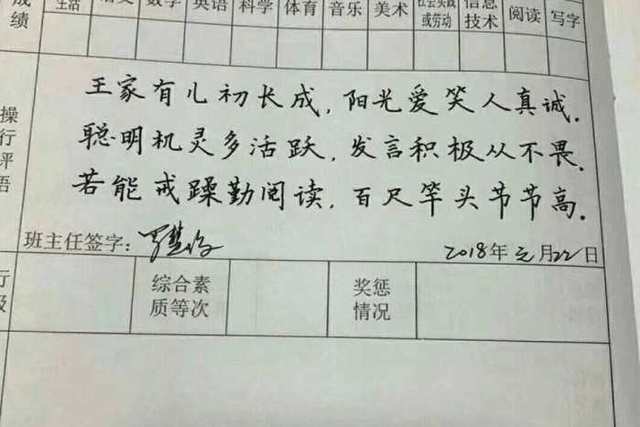 成绩 生活 语文 数学 英语 科学 体育 音乐 美术 社会实践或劳动 信息技术 阅读 写字
操行评语
王家有儿初长成,阳光爱笑人真诚.
聪明机灵多活跃,发言积极从不畏.
若能戒躁勤阅读,百尺竿头节节高.
班主任签字: 2018年元月22日
综合素质等次 奖惩情况